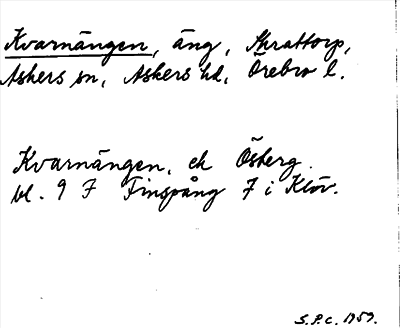 Kvarnängen, äng, Skrattorp,
Askers sn, Askers hd, Örebro l.
Kvarnängen, ek Ösberg.
bl. 9 F Finspång 7 i Klöv.
S.P.C. 1959.